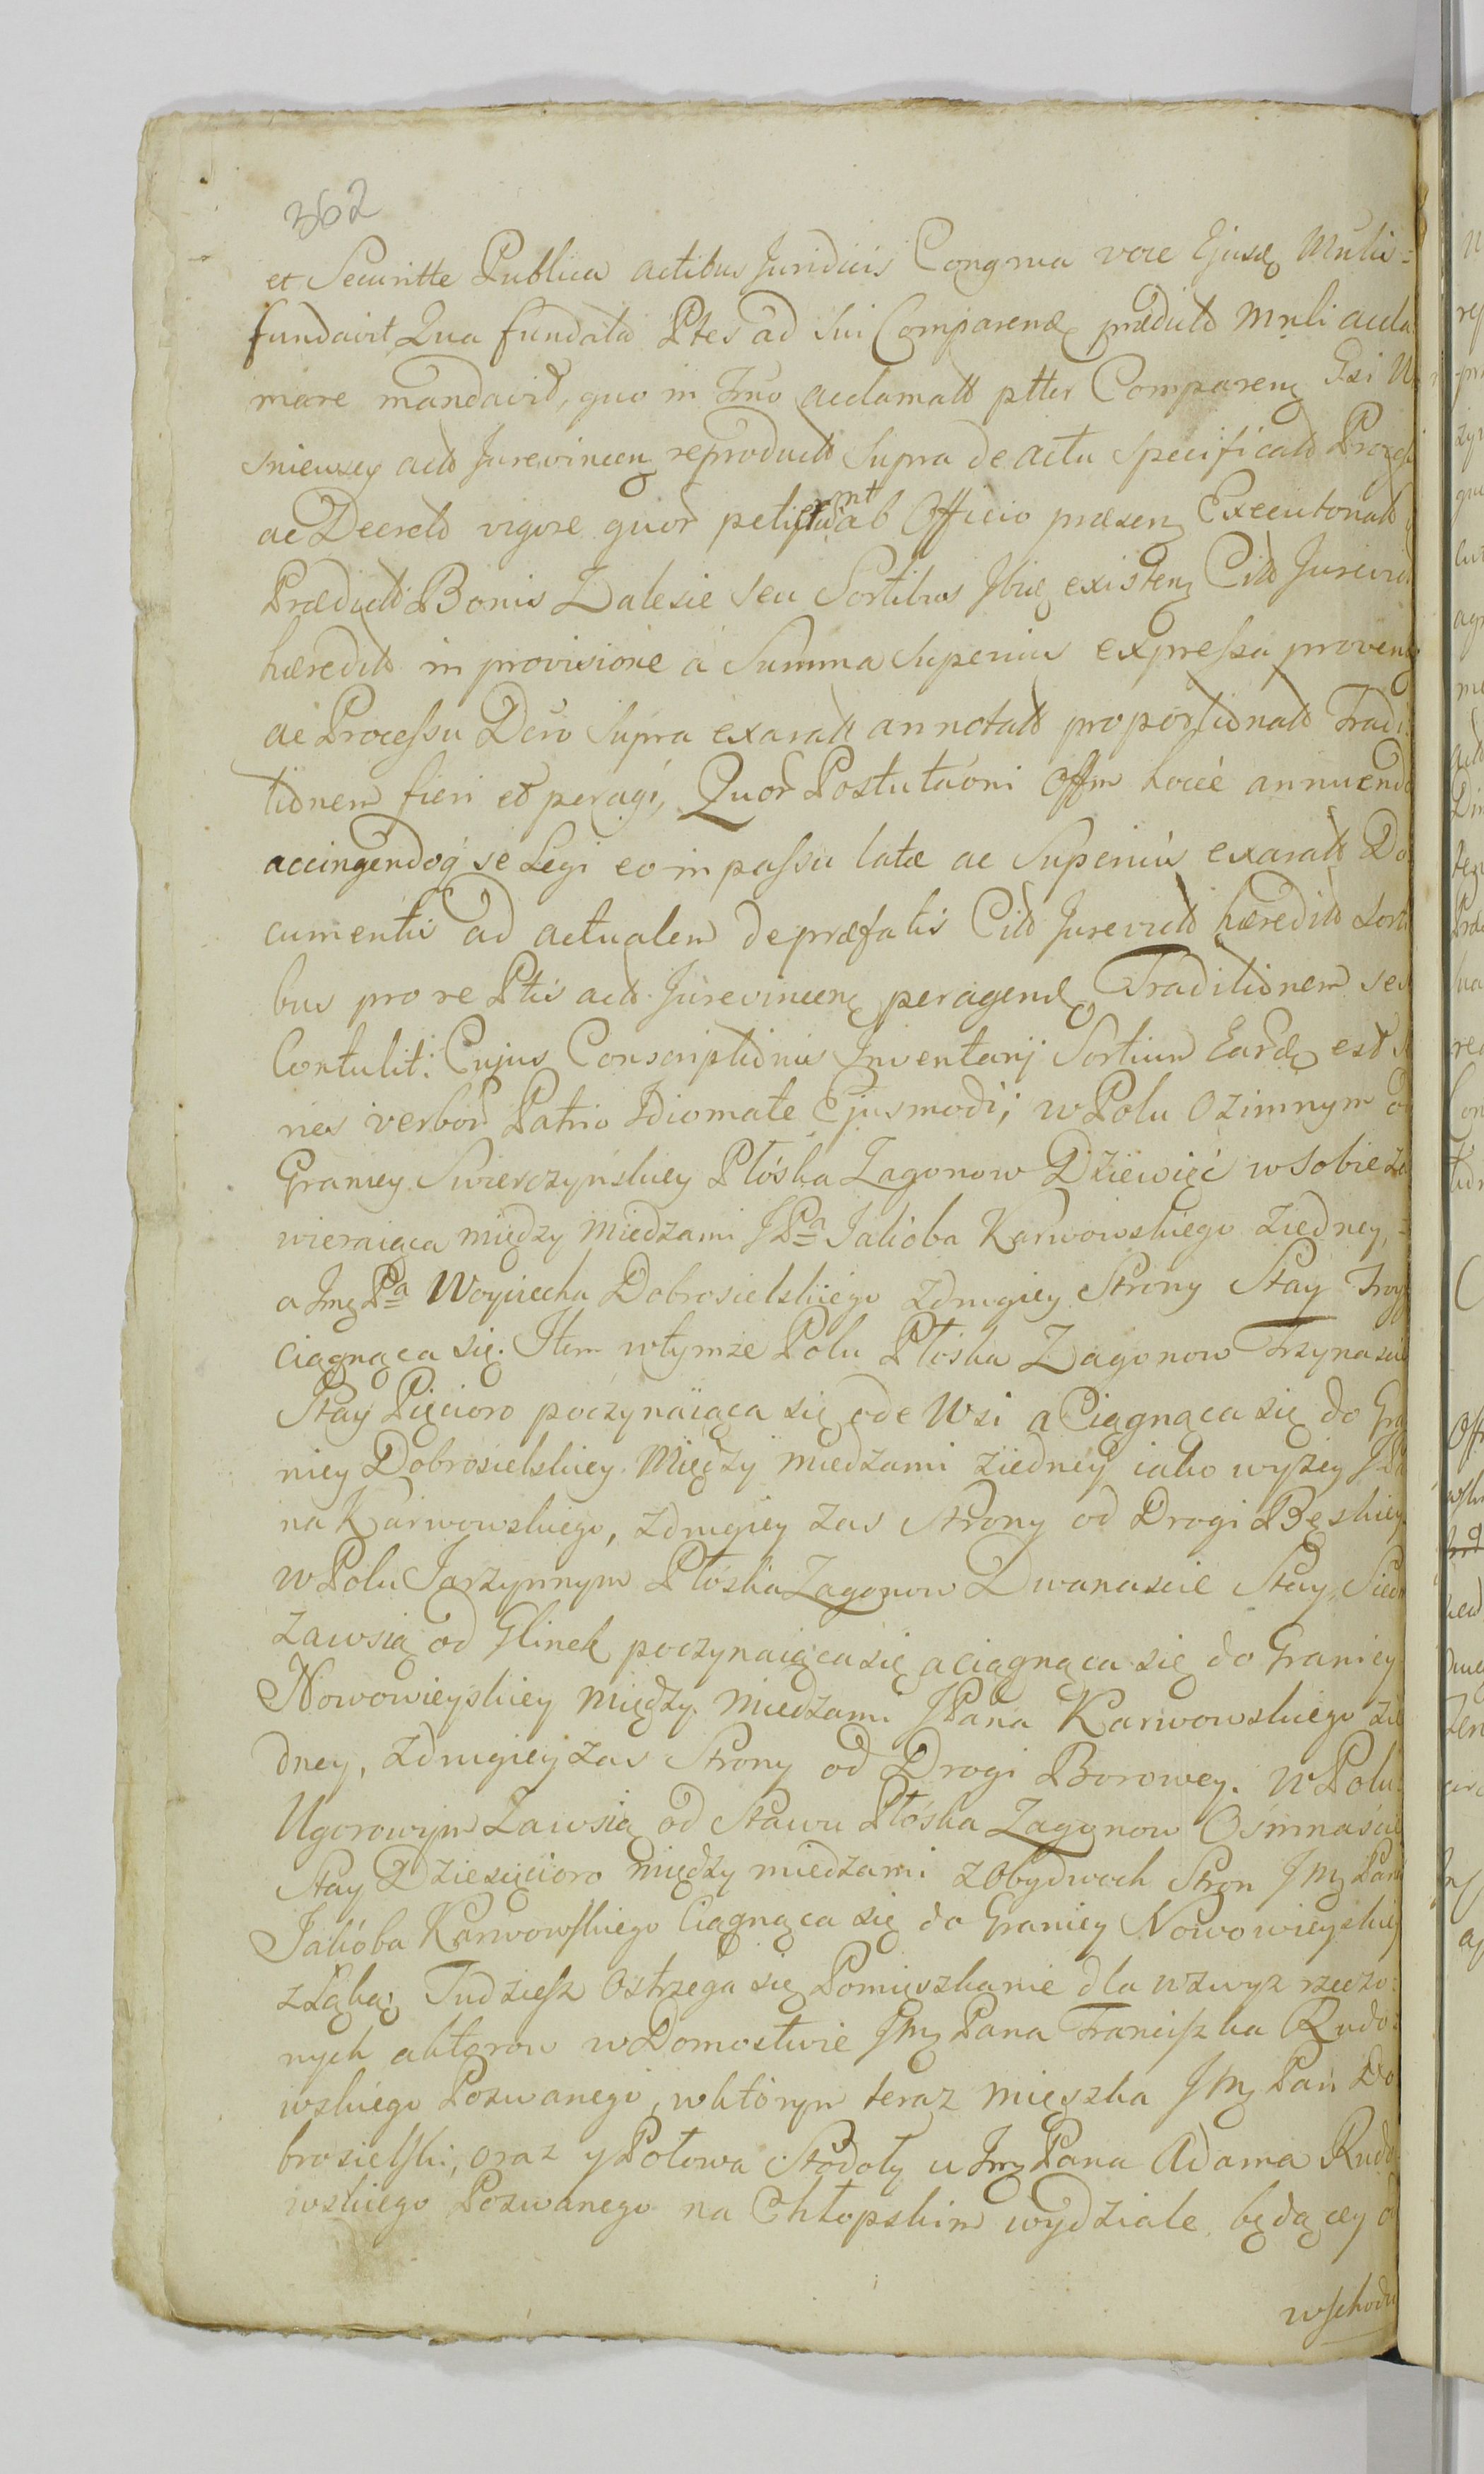 362
et Securitte Publica actibus Juridicis Congrua voce Ejusd Mnlis=
fundavit Qua fundata Ptes ad sui Comparend prædicto Mnli accla
mare mandavit, quo in Trno acclamatt ptter Comparen Gsi U
snieuscy actt Jurevincen reproductt Supra de actu specificatt
ac Decreto vigore quor petierunt ab Officio præsen Executorialt
Prædictt Bonis Zalesie seu Sortibus Ibid existen Citt Jurevict
hæreditt in provisione a Summa superius expressa proven
ac Processu Dcro Supra exaratt annotatt proportionatt Tradi
tionem fieri et peragi, Quor Postulaoni Offm hocce annuendo
accingendoq se Legi eo in passu latæ ac Superius exaratt Do
cumentis ad actualem de præfatis Citt Jurevictt hæreditt Sorti
bus pro re Ptis actt. Jurevincen peragend Traditionem se
Contulit: Cujus Conscriptionis Inventarij Sortium Eard est
nea verbor Patrio Idiomate Ejusmodi; w Polu Ozimnym
Granicy Swierczynskiey Płóska Zagonow Dziewięć w Sobie za
wieraiąca między miedzami JPa Jakóba Karwowskiego ziedney,
a Jmę Pa Woyciecha Dobrosielskiego zdrugiey Strony Stay Troy
ciągnąca się. Item wtymże Polu Płóska Zagonow Trzynascie
Stay Pięcioro poczynaiąca się ode Wsi a Ciągnąca się do Gra
nicy Dobrosielskiey. Między miedzami ziedney iako wyżey JPa
na Karwowskiego, zdrugiey zas strony od Drogi Bęskiey
w Polu Jarzynnym Płóska Zagonow Dwanascie Stay Siedm
zawsią od Glinek poczynaiąca się a ciągnąca się do Granicy
Nowowieyskiey między Miedzami JPana Karwowskiego zie
dney, zdrugiey zas Strony od Drogi Borowey. w Polu
Ugorowym Zawsią od stawu Płóska Zagonow Ośmnaście
Stay Dziesięcioro między miedzami zobydwoch Stron Jmę Pana
Jakóba Karwowskiego Ciągnąca się do Granicy Nowowieyskiey
z Łąką; Tudziesz Ostrzega się Pomięszkanie dla wzwyz rzeczo:
nych aktorow w Domostwie Jmę Pana Franciszka Rudo:
wskiego Pozwanego, wktórym teraz mięszka Jmę Pan Do
brosielski, oraz y Połowa Stodoły u Jmę Pana Adama Rudo
wskiego Pozwanego na Chłopskim wydziale będącey o
wschodu